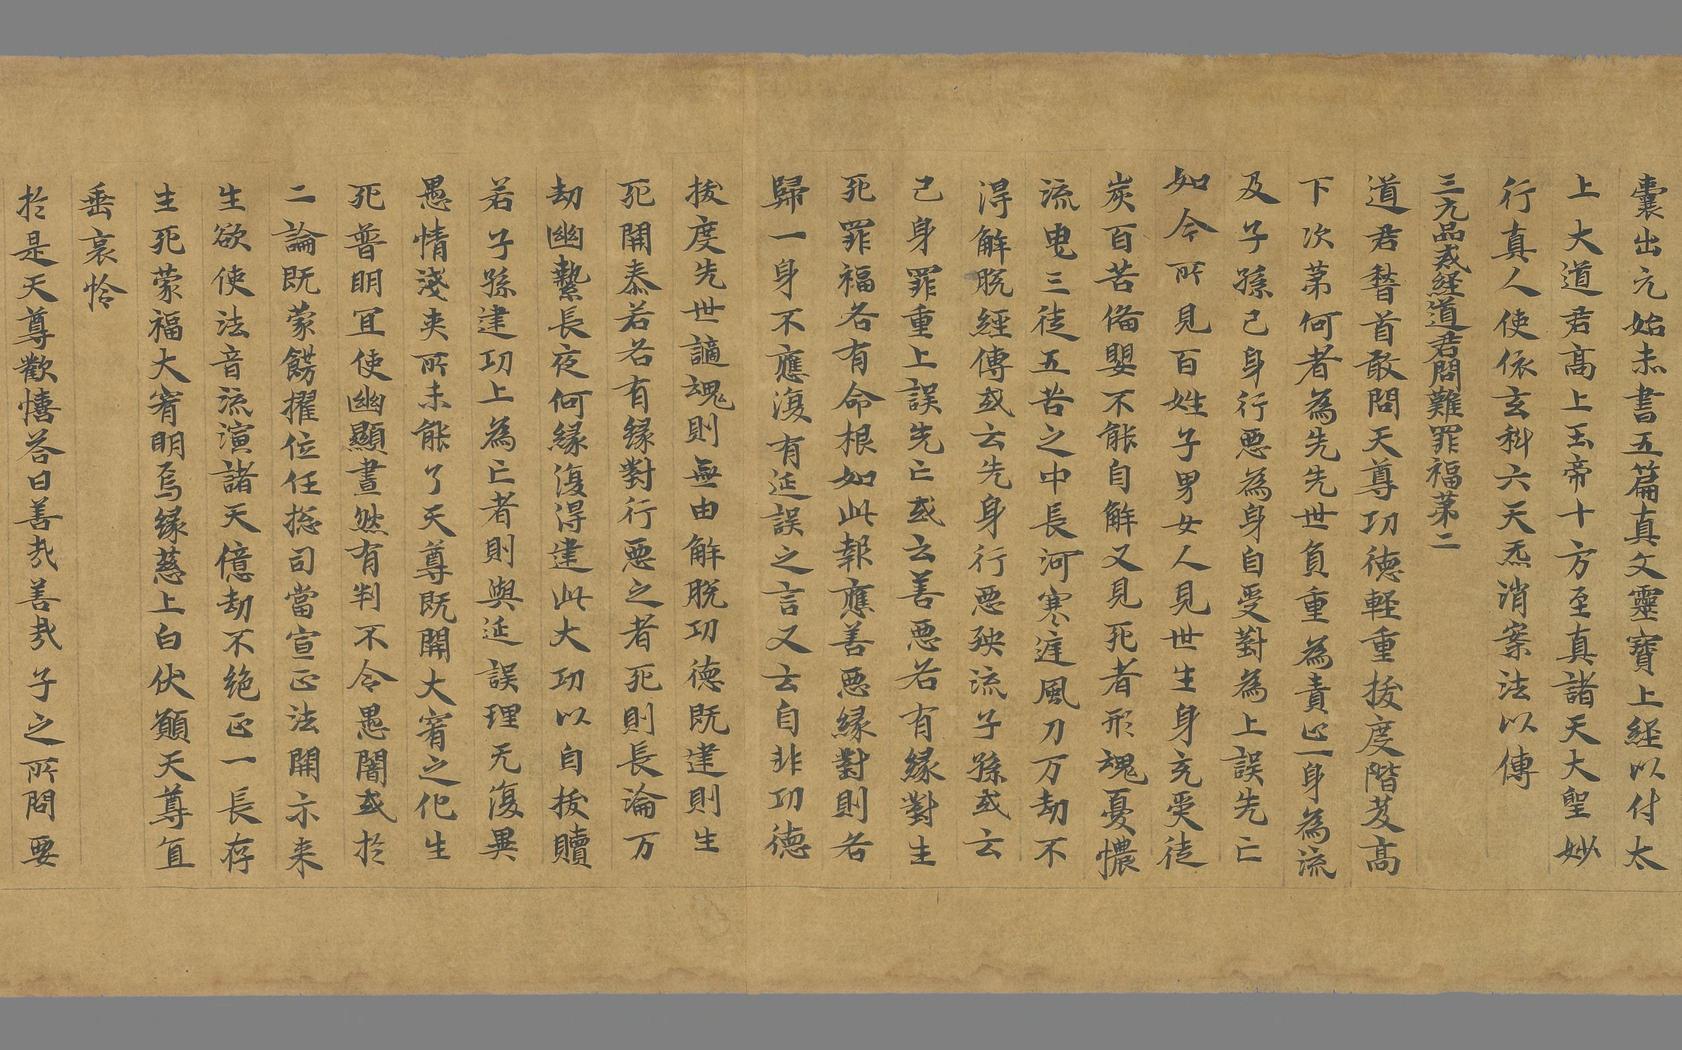 囊出元始赤書五篇真文靈寶上経以付太
上大道君高上玉帝十方至真諸天大聖妙
行真人使依玄科六天炁消案法以傳
三元品戒経道君問難罪福第二
道君稽首敢問天尊功徳軽重拔度階芨高
下次第何者為先先世負重為責止一身為流
及子孫己身行悪為身自受對為上誤先亡
如今所見百姓子男女人見世生身充受徒
炭百苦俻嬰不能自解又見死者形魂憂惱
流曳三徒五苦之中長河寒遅風刀万劫不
得解脱經傳或云先身行悪殃流子孫或云
己身罪重上誤先亡或云善悪若有緣對生
死罪福各有命根如此報應善悪緣對則各
歸一身不應復有延誤之言又云自非功徳
拔度先世謫魂則無由解脱功徳既建則生
死開泰若各有緣對行悪之者死則長淪万
劫幽縶長夜何緣復得建此大功以自拔贖
若子孫建功上為亡者則與延誤理无復異
愚情淺夹所未能了天尊既開大宥之化生
死普明冝使幽顯晝然有判不令愚闇或於
二論既蒙餝擢位任揔司當宣正法開示来
生欲使法音流演諸天億劫不絶正一長存
生死蒙福大宥明焉緣慈上白伏願天尊冝
垂哀怜
於是天尊歡憘荅曰善㢤善㢤子之所問要